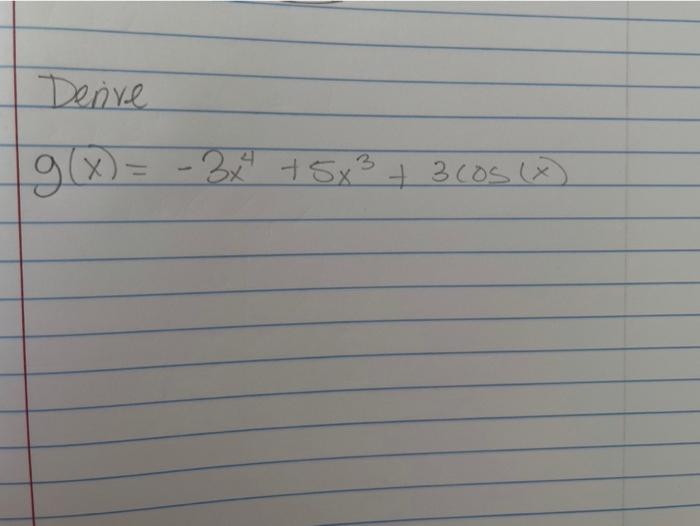 Derive
g(x) = -3x⁴ + 5x³ + 3cos(x)